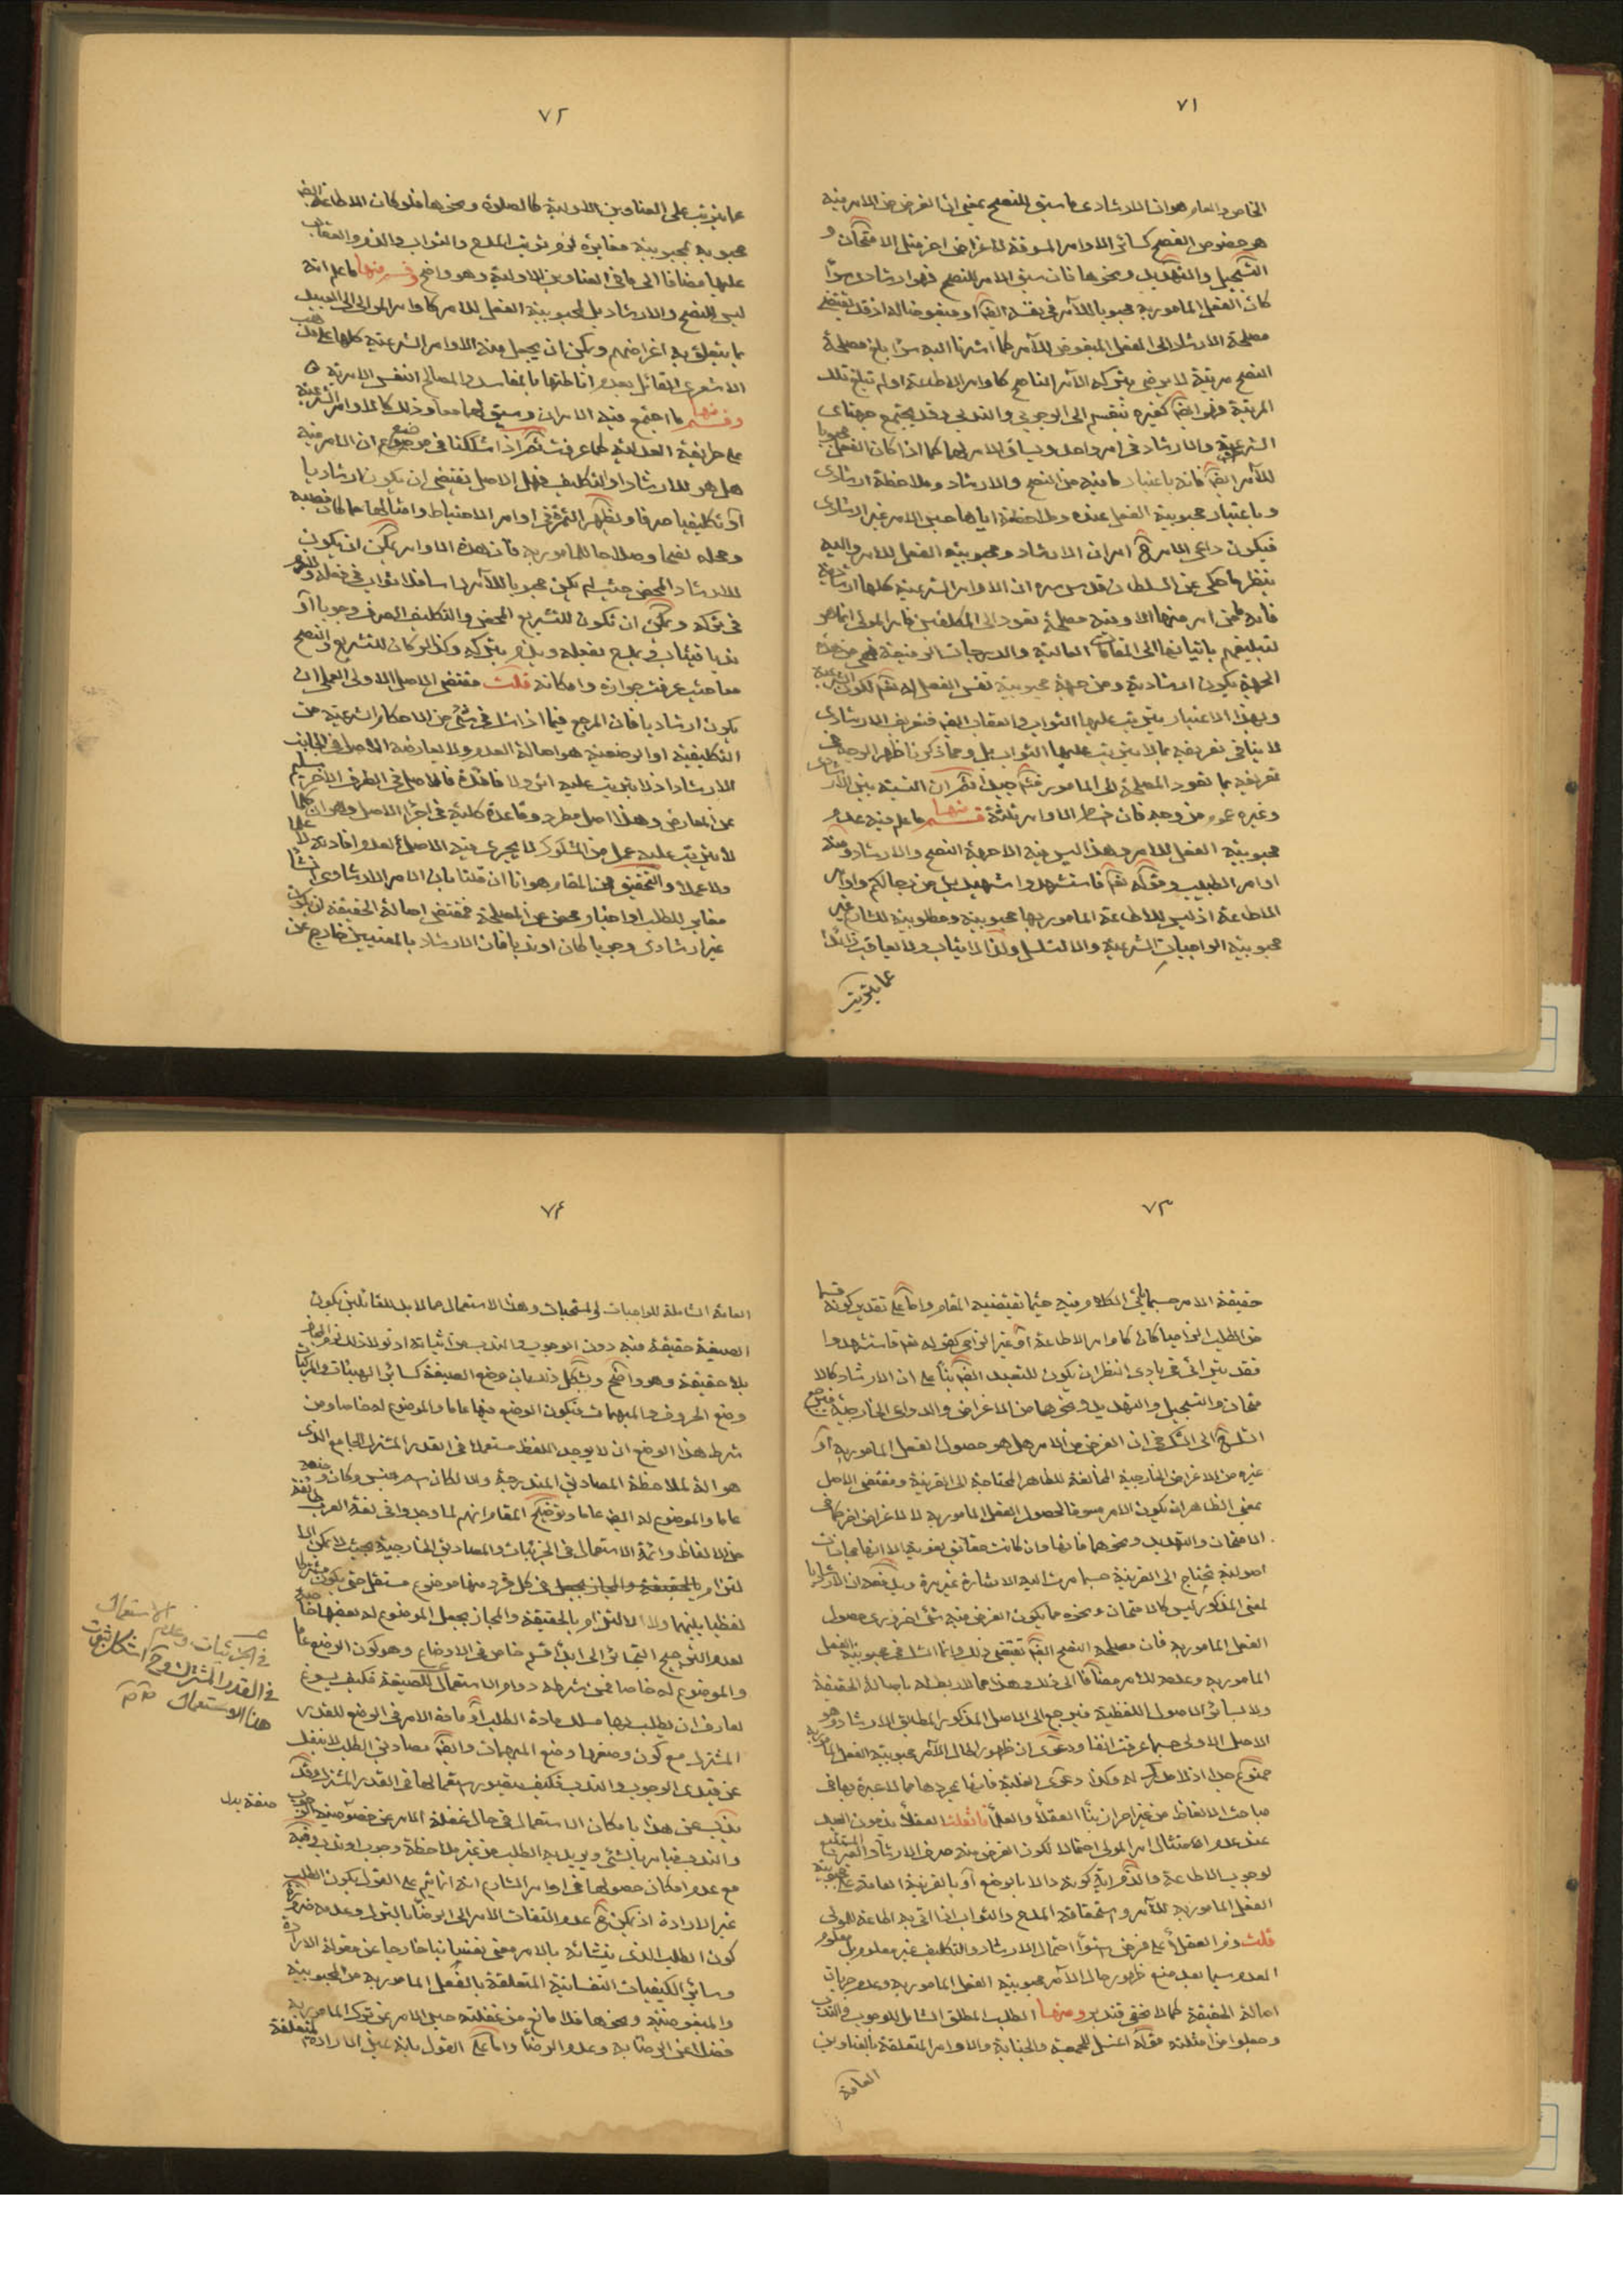 ٧١
الخاص والعام هو ان الارشادى ما سيق للنصح بمعنى ان الغرض من الامر فيه
هو خصوص النصح كسائر الاوامر المسوقة لاغراض اخر مثل الامتحان و
التعجيل والتهديد ونحوها فان سيق الامر للنصح فهو ارشادى سواء
كان الفعل المامور به محبوبا للآمر فى نفسه ايضا او مبغوضا له اذ قد يقتضى
مصلحة الارشاد الى الفعل المبغوض للآمر كما اشرنا اليه سواء بلغ مصلحة
النصح مرتبة لا يرضى بتركه الآمر الناصح كاوامر الاطاعة او لم تبلغ تلك
المرتبة فهو ايضا كغيره ينقسم الى الوجوبى والندبى وقد يجتمع جهتا
الشرعية والارشاد فى امر واحد ويساق الامر لهما كما اذا كان الفعل محبوبا
للآمر ايضا فانه باعتبار ما فيه من النصح والارشاد وملاحظة ارشادى
وباعتبار محبوبية الفعل عنده وملاحظته اياها حين الامر غير ارشادى
فيكون داعى الامر ح امران الارشاد ومحبوبية الفعل للآمر واليه
ينظر ما حكى عن السلطان قدس سره ان الاوامر الشرعية كلها ارشادية
فانه ما من امر منها الا وفيه مصلحة تعود الى المكلفين فامر المولى انما هو
لتبليغهم باتيانها الى المقامات العالية والدرجات الرفيعة فهى من هذه
الجهة يكون ارشادية ومن جهة محبوبية نفس الفعل له تعالى يكون شرعية
وبهذا الاعتبار يترتب عليها الثواب والعقاب ايضا فتعريف الارشادى
لا ينافى تعريفه بما لا يترتب عليها الثواب بل ومما ذكرنا ظهر الوجه فى
تعريفه بما تعود المصلحة الى المامور فتدبر جيدا ثم ان النسبة بين الارشادى
وغيره عموم من وجه فان خطر الاوامر ثلثة قسم منها ما علم فيه عدم
محبوبية الفعل للآمر وهذا ليس فيه الا جهة النصح والارشاد ومنه
اوامر الطبيب وقوله تعالى فاستشهدوا شهيدين من رجالكم واوامر
الاطاعة اذ ليس للاطاعة المامور بها محبوبية ومطلوبية للشارع غير
محبوبية الواجبات الشرعية والا لتسلسل ولذا لا يثاب ولا يعاقب زائدا
عما يترتب
٧٢
عما يترتب على العناوين الاولية كالصلوة ونحوها فلو كان الاطاعة ايضا
محبوبة بمحبوبية مغايرة لزم ترتيب المدح والثواب والذم والعقاب
عليها مضافا الى ما فى العناوين الاولية وهو واضح وقسم منها ما علم انه
ليس للنصح والارشاد بل لمحبوبية الفعل للآمر كاوامر الموالى الى العبيد
بما يتعلق به اغراضهم ويمكن ان يجعل منه الاوامر الشرعية كلها على مذهب
الاشعرى القائل بعدم اناطتها بالمفاسد والمصالح النفس الامرية
وقسم منها ما اجتمع فيه الامران وسيق لهما معا وذلك كالاوامر الشرعية
على طريقة العدلية كما عرفت ثم اذا شككنا فى موضع ان الامر فيه
هل هو للارشاد او التكليف فهل الاصل تقتضى ان يكون ارشاديا
او تكليفيا صرفا وتظهر الثمرة فى اوامر الاحتياط وامثالها مما كان فعله
ومحله نفعا وصلاحا للمامور به فان هذه الاوامر يمكن ان يكون
للارشاد المحض حيث لم يكن محبوبا للآمر اساسا فلا ثواب فى فعله ولا ذم
فى تركه ويمكن ان تكون للتشريع المحض والتكليف الصرف وجوبا او
ندبا فيثاب ويمدح بفعله ويذم بتركه وكذا لو كان للتشريع والنصح
معا حيث عرفت جوازه وامكانه قلت مقتضى الاصل الاولى العملى ان
يكون ارشاديا فان المرجع فيما اذا شك فى شئ من الاحكام الشرعية من
التكليفية او الوضعية هو اصالة العدم ولا يعارضه الاصل فى جانب
الارشاد اذ لا يترتب عليه اثر ولا فائدة فالاصل فى الطرف الآخر سليم
عن المعارض وهذا اصل مطرد وقاعدة كلية فى اجراء الاصل وهو ان كلما
لا يترتب عليه عمل من المشكوك لا يجرى فيه الاصل لعدم افادته علما
ولا عملا والتحقيق فى المقام هو انا ان قلنا بان الامر الارشادى انشاء
مغاير للطلب او اخبار محض عن المصلحة فمقتضى اصالة الحقيقة ان يكون
غير ارشادى وجوبا كان او ندبا فان الارشاد بالمعنيين خارج عن
٧٣
حقيقة الامر حسبما يأتى الكلام فيه حيثما تقتضيه المقام واما على تقدير كونه قسما
من الطلب الواجبا كان كاوامر الاطاعة او غير الواجب كقوله تعالى فاستشهدوا
فقد يترائى فى بادى النظر ان يكون للتعبد ايضا بناء على ان الارشاد كالا
متحان والتعجيل والتهديد ونحوها من الاغراض والدواعى الخارجية فيرجع
الشك ح الى الشك فى ان الغرض من الامر هل هو حصول الفعل المامور به او
غيره من الاغراض الخارجية المخالفة للظاهر المحتاجة الى القرينة ومقتضى الاصل
بمعنى الظاهر ان يكون الامر مسوقا لحصول الفعل المامور به لا لاغراض اخر كما فى
الامتحان والتهديد ونحوهما فانها وان كانت حقائق لغوية الا انها مجازات
اصولية تحتاج الى القرينة حسبما مرت اليه الاشارة غير مرة ويدفعه ان الارشاد
لمعنى المذكور ليس كالامتحان ونحوه مما يكون الغرض فيه شئ اخر غير حصول
الفعل المامور به فان مصلحة النصح ايضا تقتضى ذلك وانما الشك فى محبوبية الفعل
المامور به وعدمه للآمر مضافا الى ذلك وهذا مما لا ربط له باصالة الحقيقة
ولا بسائر الاصول اللفظية فيرجع الى الاصل المذكور المطابق للارشاد وهو
الاصل الاولى حسبما عرفت آنفا ودعوى ان ظهور الحال للآمر محبوبية الفعل المامور به
ممنوع جدا اذ لا مدرك له وكذا دعوى الغلبة فانها بمجردها مما لا عبرة بها فى
مباحث الالفاظ من غير احراز بناء العقلاء والعلماء فان قلت العقلاء يذمون العبد
عند عدم الامتثال امر المولى احتمالا لكون الغرض منه صرف الارشاد الغير المستتبع
لوجوب الاطاعة والذم آية كونه دالا بالوضع او بالقرينة العامة على محبوبية
الفعل المامور به للآمر واستحقاقه المدح والثواب اذا اتى به اطاعة للمولى
قلت ذم العقلاء على فرض استواء احتمال الارشاد والتكليف غير معلوم بل معلوم
العدم سيما بعد منع ظهور حال الآمر محبوبية الفعل المامور به وعدم جريان
اصالة الحقيقة كما لا يخفى فتدبر ومنها الطلب المطلق الشامل للوجوب والندب
وجعلوا من امثلته قوله اغتسل للجمعة والجنابة والاوامر المتعلقة بالعناوين
العامة
٧٤
العامة الشاملة للواجبات والمستحبات وهذا الاستعمال مما لا بد للقائلين بكون
الصيغة حقيقة فيه دون الوجوب والندب من اثباته اذ لولا ذلك لزم المجاز
بلا حقيقة وهو واضح ويشكل ذلك بان وضع الصيغة كسائر الهيئات والمركبات
وضع الحروف والمبهمات فيكون الوضع فيها عاما والموضوع له خاصا ومن
شرط هذا الوضع ان لا يوجد اللفظ مستعملا فى القدر المشترك الجامع الذى
هو آلة لملاحظة المصاديق المندرجة والا لكان اسم جنس وكان وضعه
عاما والموضوع له ايضا عاما وتوضيح المقام انهم لما وجدوا فى لغة العرب طائفة
من الالفاظ دائمة الاستعمال فى الجزئيات والمصاديق الخارجية بحيث لا يمكن الا
لتزام بالحقيقة والمجاز بجعل فى كل فرد منها موضوع مستقل حتى يكون مشتركا
لفظيا بينها ولا الالتزام بالحقيقة والمجاز بجعل الموضوع له بعضها خاصة
لعدم الترجيح التجأوا الى ابداء قسم خاص فى الاوضاع وهو كون الوضع عاما
والموضوع له خاصا فمن شرطه دوام الاستعمال للصيغة فكيف يسوغ
لعارف ان يطلب بها مسلك مادة الطلب او مادة الامر فى الوضع للقدر
المشترك مع كون وضعها وضع المبهمات وايضا مصاديق الطلب لا ينفك
عن قيدى الوجوب والندب فكيف يتصور استعمالها فى القدر المشترك وقد
يذب عن هذا بامكان الاستعمال فى حال غفلة الامر عن خصوصية الوجوب
والندب فيامر بالشئ ويريد به الطلب من غير ملاحظة وجوب او ندب وفيه
مع عدم امكان حصولها فى اوامر الشارع انه انما يتم على القول بكون الطلب
غير الارادة اذ يمكن ح عدم التفات الامر الى الرضاء بالترك وعدمه ضرورة
كون الطلب الذى ينشائه بالامر معنى نفسانيا خارجا عن مقولة الارادة
وسائر الكيفيات النفسانية المتعلقة بالفعل المامور به من المحبوبية
والمبغوضية ونحوها فلا مانع من غفلته حين الامر عن ترك المامور به
فضلا عن الرضا به وعدم الرضاء واما على القول بانه عين الارادة المتعلقة
الاستعمال
فى الجزئيات وعدم
فى القدر المشترك وح اشكال ثبوت
هذا الاستعمال
صفة بدل